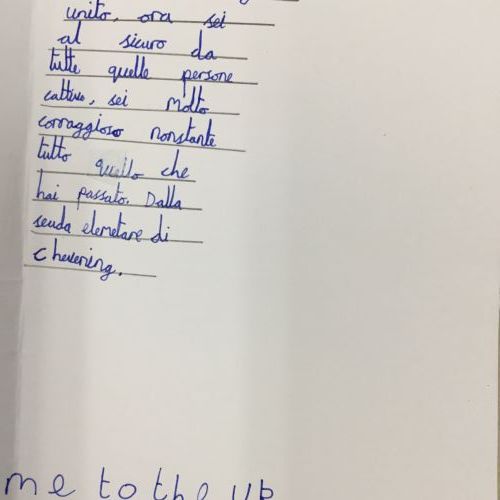 unito, ora sei
al sicuro da
tutte quelle persone
cattive, sei molto
corraggioso nonstante
tutto quello che
hai passato. Dalla
scuda elemetare di
chevening.
me to the up